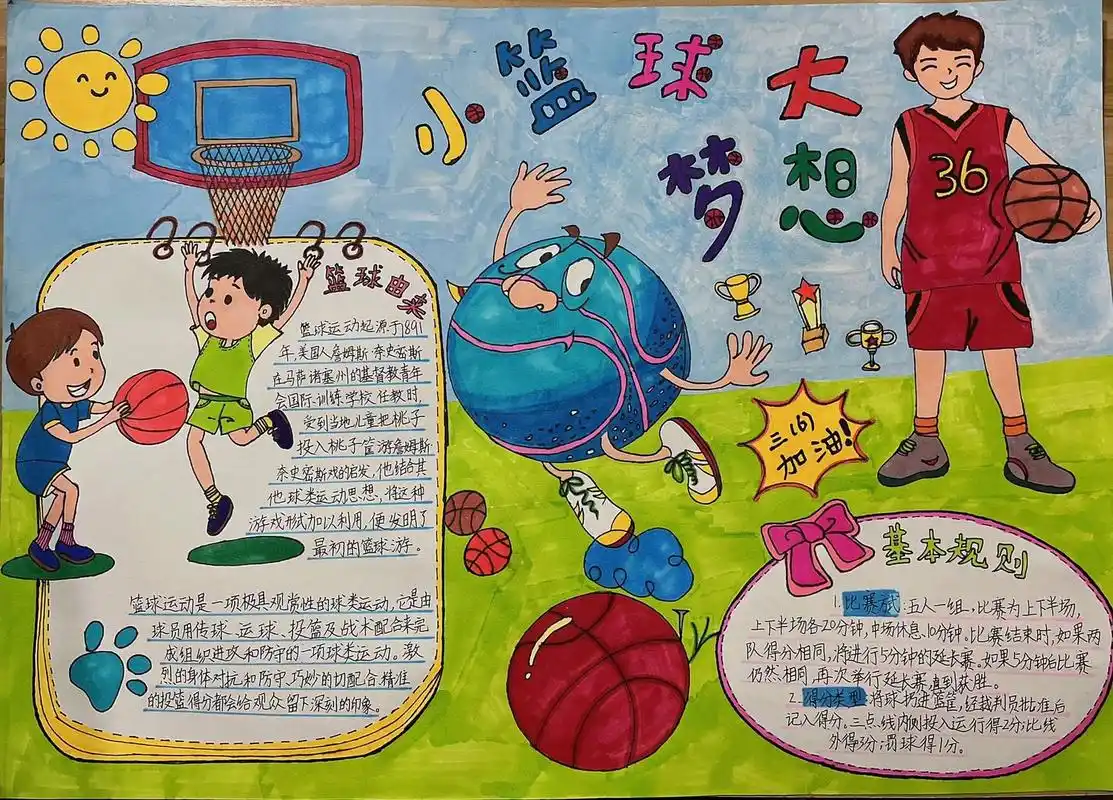 小篮球大
梦想
36
篮球由来
篮球运动起源于1891
年,美国人詹姆斯·奈史密斯
在马萨诸塞州的基督教青年
会国际训练学校任教时,
受到当地儿童把桃子
投入桃子筐游詹姆斯·
奈史密斯戏的启发,他结合其
他球类运动思想,将这种
游戏形式加以利用,便发明了
最初的篮球游。
篮球运动是一项极具观赏性的球类运动,它是由
球员用传球、运球、投篮及战术配合来完
成组织进攻和防守的一项球类运动。激
烈的身体对抗和防守,巧妙的切配合,精准
的投篮得分都会给观众留下深刻的印象。
三(6)
加油!
基本规则
1.比赛式:五人一组,比赛为上下半场,
上下半场各20分钟,中场休息10分钟。比赛结束时,如果两
队得分相同,将进行5分钟的延长赛。如果5分钟后比赛
仍然相同,再次举行延长赛,直到获胜。
2.得分类型:将球投进篮筐,经裁判员批准后
记入得分。三点线内侧投入运行得2分;比线
外得3分;罚球得1分。